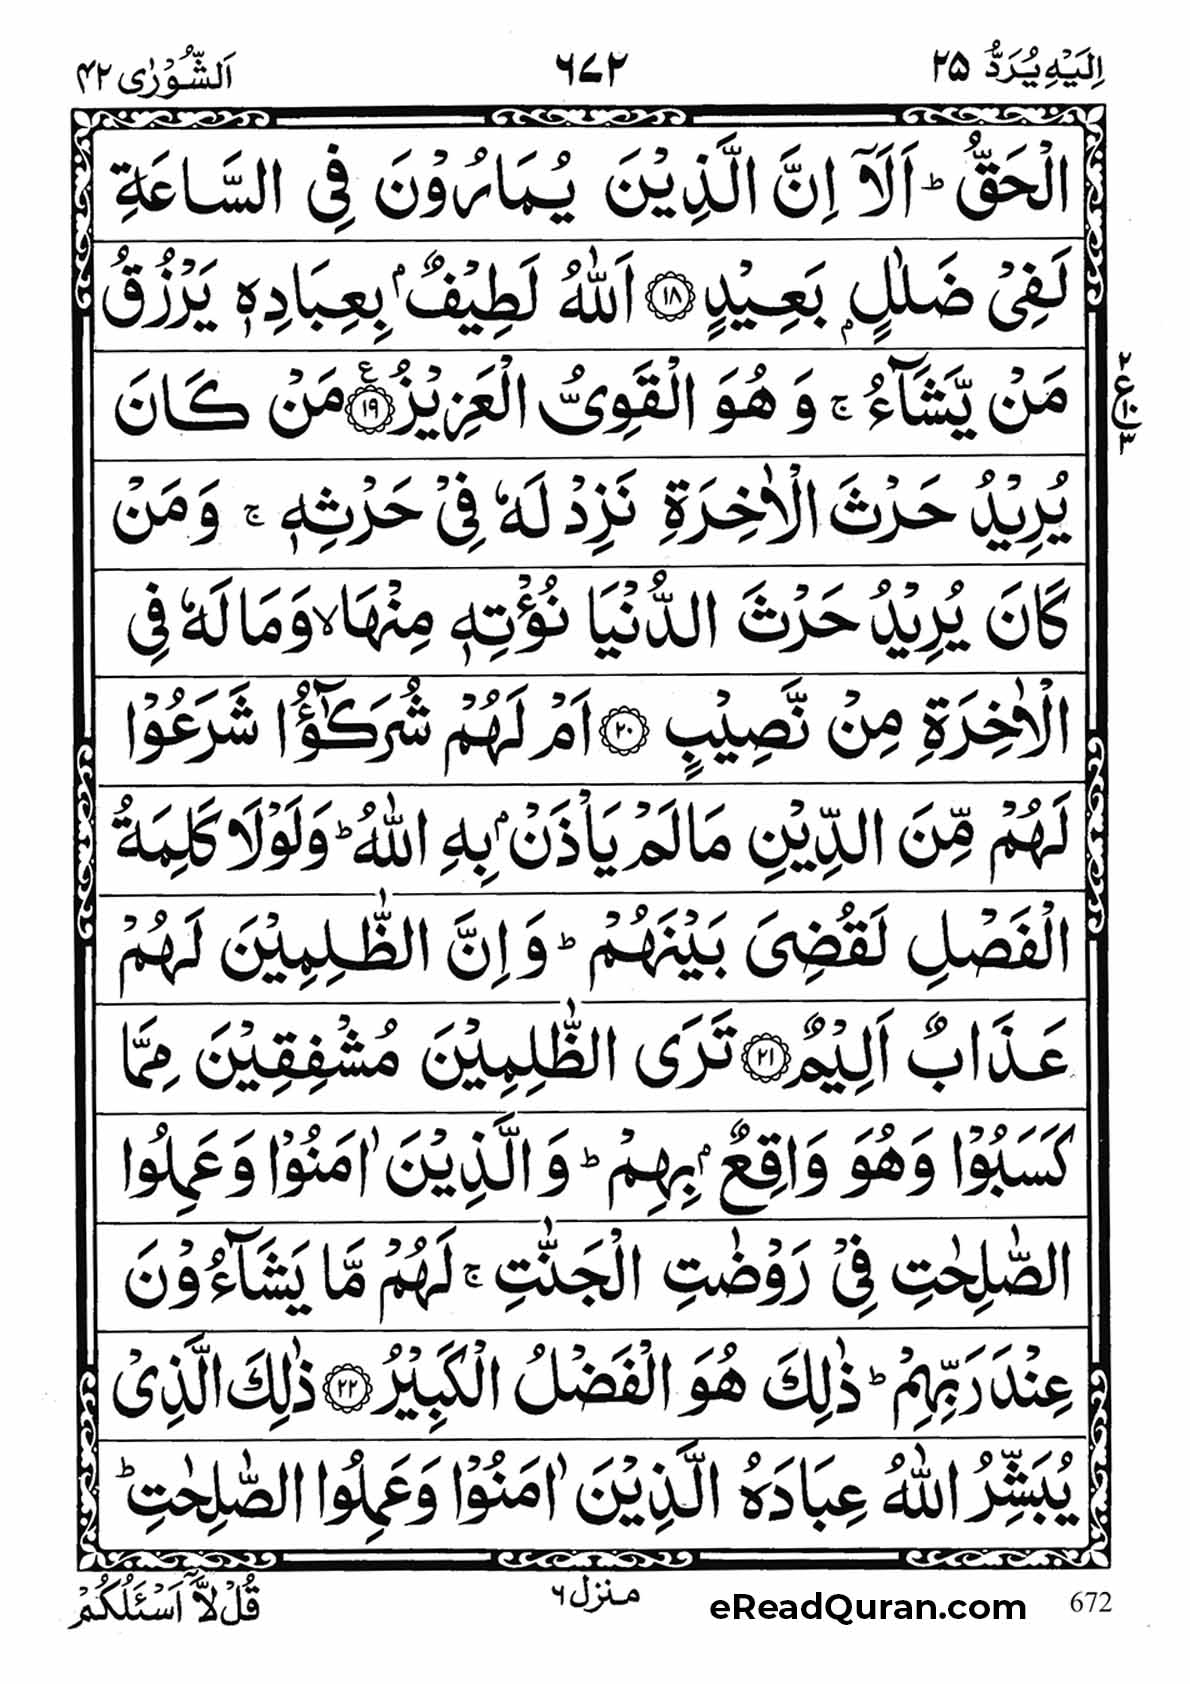 اِلَيْهِ يُرَدُّ ٢٥ ٦٧٢ اَلشُّوْرٰى ٤٢
الْحَقُّ ؕ اَلَاۤ اِنَّ الَّذِيْنَ يُمَارُوْنَ فِى السَّاعَةِ
لَفِىْ ضَلٰلٍۭ بَعِيْدٍ ۝١٨ اَللّٰهُ لَطِيْفٌۢ بِعِبَادِهٖ يَرْزُقُ
مَنْ يَّشَآءُ ۚ وَهُوَ الْقَوِىُّ الْعَزِيْزُ ۝١٩ ع مَنْ كَانَ
٢ ع ١٠ ٣
يُرِيْدُ حَرْثَ الْاٰخِرَةِ نَزِدْ لَهٗ فِىْ حَرْثِهٖ ۚ وَمَنْ
كَانَ يُرِيْدُ حَرْثَ الدُّنْيَا نُؤْتِهٖ مِنْهَا ۙ وَمَا لَهٗ فِى
الْاٰخِرَةِ مِنْ نَّصِيْبٍ ۝٢٠ اَمْ لَهُمْ شُرَكٰٓؤُا شَرَعُوْا
لَهُمْ مِّنَ الدِّيْنِ مَا لَمْ يَاْذَنْۢ بِهِ اللّٰهُ ؕ وَلَوْلَا كَلِمَةُ
الْفَصْلِ لَقُضِىَ بَيْنَهُمْ ؕ وَاِنَّ الظّٰلِمِيْنَ لَهُمْ
عَذَابٌ اَلِيْمٌ ۝٢١ تَرَى الظّٰلِمِيْنَ مُشْفِقِيْنَ مِمَّا
كَسَبُوْا وَهُوَ وَاقِعٌۢ بِهِمْ ؕ وَالَّذِيْنَ اٰمَنُوْا وَعَمِلُوا
الصّٰلِحٰتِ فِىْ رَوْضٰتِ الْجَنّٰتِ ۚ لَهُمْ مَّا يَشَآءُوْنَ
عِنْدَ رَبِّهِمْ ؕ ذٰلِكَ هُوَ الْفَضْلُ الْكَبِيْرُ ۝٢٢ ذٰلِكَ الَّذِىْ
يُبَشِّرُ اللّٰهُ عِبَادَهُ الَّذِيْنَ اٰمَنُوْا وَعَمِلُوا الصّٰلِحٰتِ ؕ
قُلْ لَّاۤ اَسْـَٔلُكُمْ منزل ٦ eReadQuran.com 672